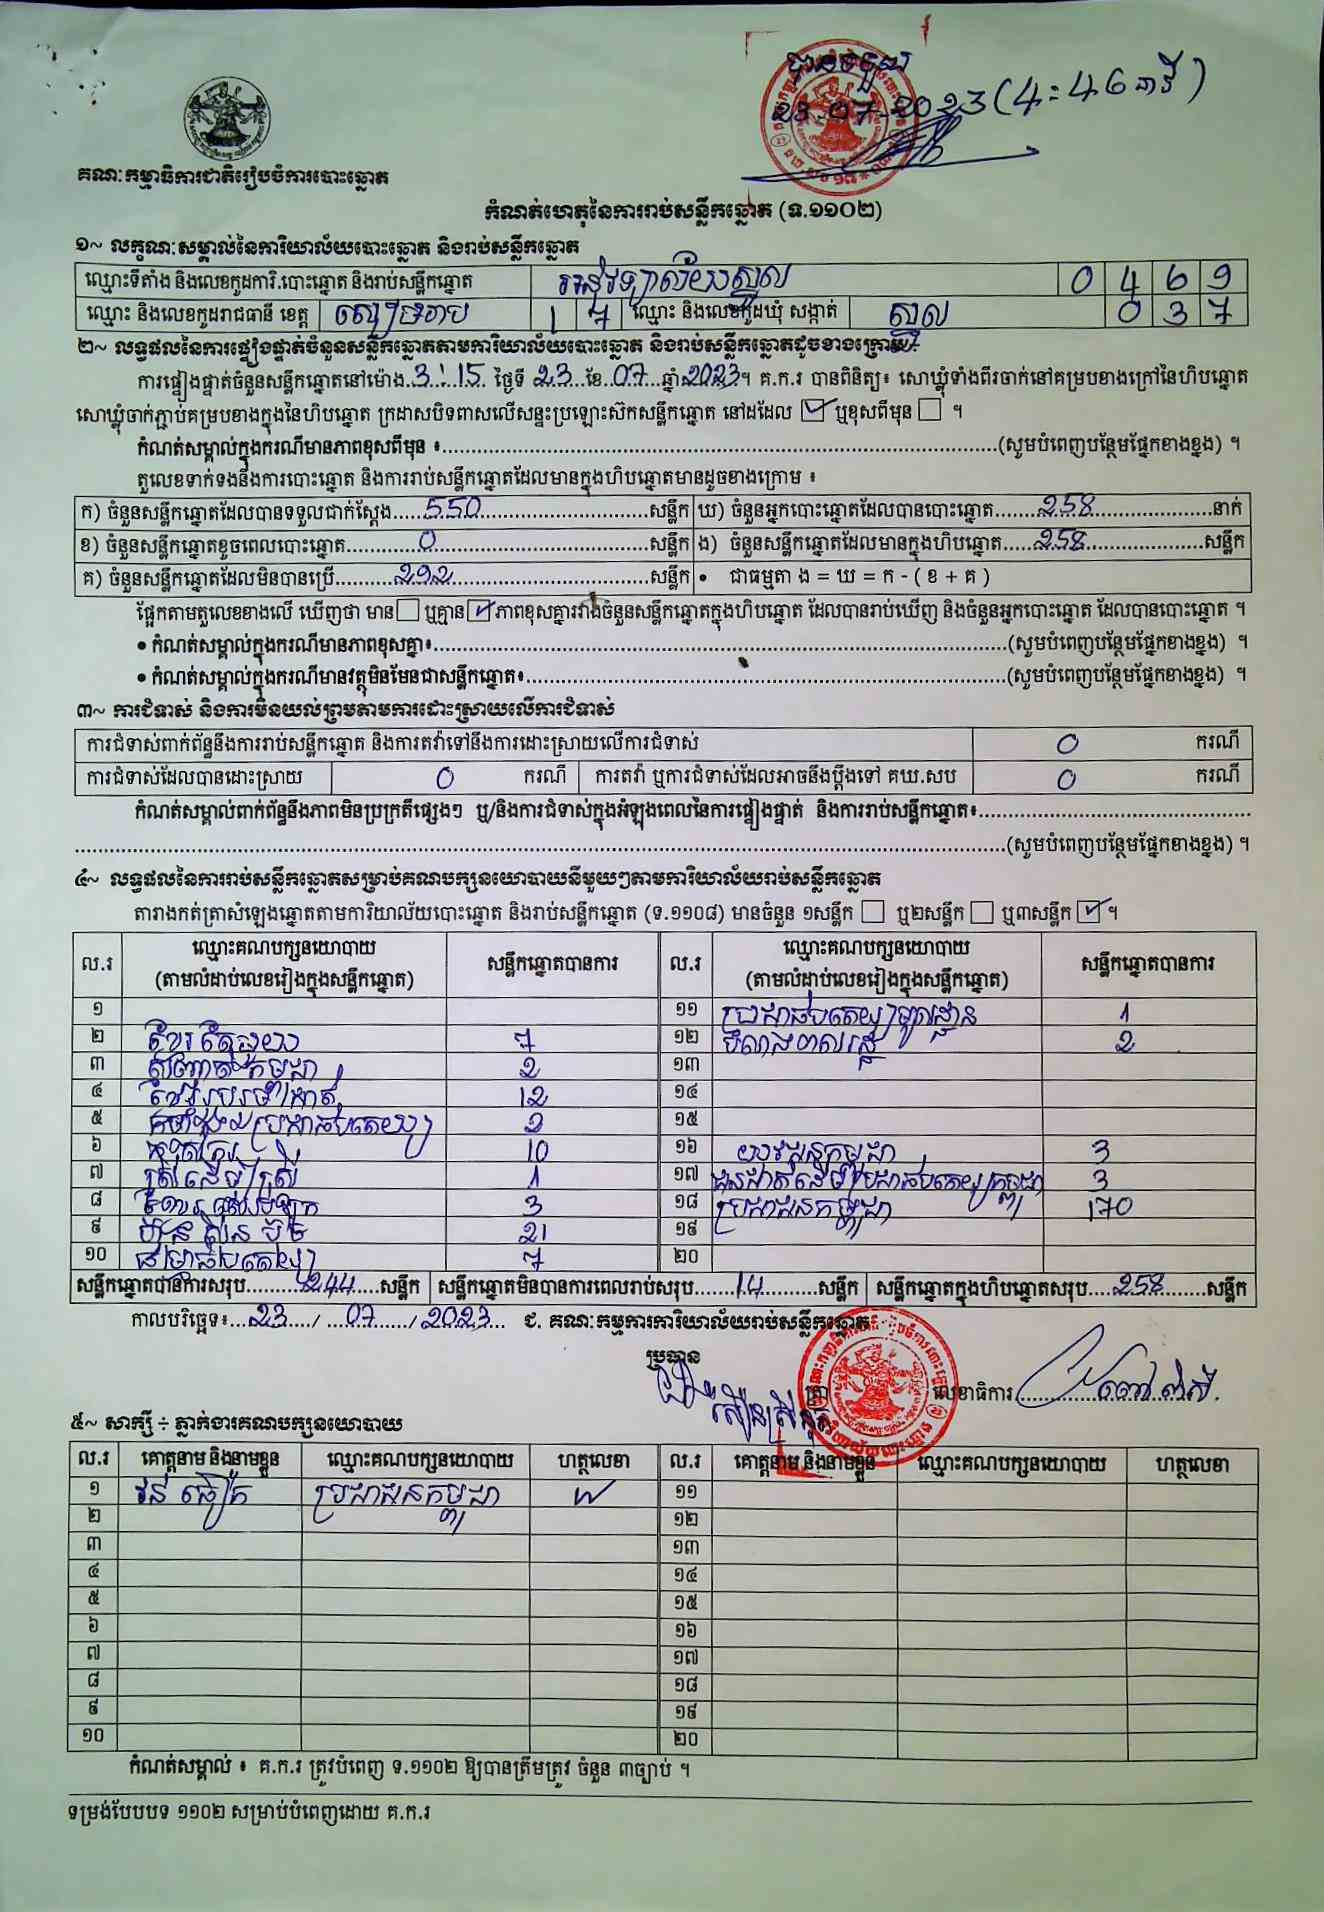 បានទទួល
23.07.2023 (4:46 នាទី)
គណៈកម្មាធិការជាតិរៀបចំការបោះឆ្នោត
កំណត់ហេតុនៃការរាប់សន្លឹកឆ្នោត (ទ.១១០២)
១~ លក្ខណៈសម្គាល់នៃការិយាល័យបោះឆ្នោត និងរាប់សន្លឹកឆ្នោត
ឈ្មោះទីតាំង និងលេខកូដការិ.បោះឆ្នោត និងរាប់សន្លឹកឆ្នោត 0 4 6 9
ឈ្មោះ និងលេខកូដរាជធានី ខេត្ត សៀមរាប 1 7 ឈ្មោះ និងលេខកូដឃុំ សង្កាត់ ស្នួល 0 3 7
២~ លទ្ធផលនៃការផ្ទៀងផ្ទាត់ចំនួនសន្លឹកឆ្នោតតាមការិយាល័យបោះឆ្នោត និងរាប់សន្លឹកឆ្នោតដូចខាងក្រោម៖
ការផ្ទៀងផ្ទាត់ចំនួនសន្លឹកឆ្នោតនៅម៉ោង 3:15 ថ្ងៃទី 23 ខែ 07 ឆ្នាំ 2023។ គ.ក.រ បានពិនិត្យ៖ សោឃ្លុំទាំងពីរចាក់នៅគម្របខាងក្រៅនៃហិបឆ្នោត
សោឃ្លុំចាក់ភ្ជាប់គម្របខាងក្នុងនៃហិបឆ្នោត ក្រដាសបិទពាសលើសន្ទះប្រឡោះស៊កសន្លឹកឆ្នោត នៅដដែល ☑ ឬខុសពីមុន ☐ ។
កំណត់សម្គាល់ក្នុងករណីមានភាពខុសពីមុន ៖......(សូមបំពេញបន្ថែមផ្នែកខាងខ្នង) ។
តួលេខទាក់ទងនឹងការបោះឆ្នោត និងការរាប់សន្លឹកឆ្នោតដែលមានក្នុងហិបឆ្នោតមានដូចខាងក្រោម ៖
ក) ចំនួនសន្លឹកឆ្នោតដែលបានទទួលជាក់ស្តែង.....550.....សន្លឹក ឃ) ចំនួនអ្នកបោះឆ្នោតដែលបានបោះឆ្នោត.....258.....នាក់
ខ) ចំនួនសន្លឹកឆ្នោតខូចពេលបោះឆ្នោត.....0.....សន្លឹក ង) ចំនួនសន្លឹកឆ្នោតដែលមានក្នុងហិបឆ្នោត.....258.....សន្លឹក
គ) ចំនួនសន្លឹកឆ្នោតដែលមិនបានប្រើ.....292.....សន្លឹក • ជាធម្មតា ង = ឃ = ក - ( ខ + គ )
ផ្អែកតាមតួលេខខាងលើ ឃើញថា មាន ☐ ឬគ្មាន ☑ ភាពខុសគ្នារវាងចំនួនសន្លឹកឆ្នោតក្នុងហិបឆ្នោត ដែលបានរាប់ឃើញ និងចំនួនអ្នកបោះឆ្នោត ដែលបានបោះឆ្នោត ។
• កំណត់សម្គាល់ក្នុងករណីមានភាពខុសគ្នា៖......(សូមបំពេញបន្ថែមផ្នែកខាងខ្នង) ។
• កំណត់សម្គាល់ក្នុងករណីមានវត្ថុមិនមែនជាសន្លឹកឆ្នោត៖......(សូមបំពេញបន្ថែមផ្នែកខាងខ្នង) ។
៣~ ការជំទាស់ និងការមិនយល់ព្រមតាមការដោះស្រាយលើការជំទាស់
ការជំទាស់ពាក់ព័ន្ធនឹងការរាប់សន្លឹកឆ្នោត និងការតវ៉ាទៅនឹងការដោះស្រាយលើការជំទាស់ 0 ករណី
ការជំទាស់ដែលបានដោះស្រាយ 0 ករណី ការតវ៉ា ឬការជំទាស់ដែលអាចនឹងប្តឹងទៅ គឃ.សប 0 ករណី
កំណត់សម្គាល់ពាក់ព័ន្ធនឹងភាពមិនប្រក្រតីផ្សេងៗ ឬ/និងការជំទាស់ក្នុងអំឡុងពេលនៃការផ្ទៀងផ្ទាត់ និងការរាប់សន្លឹកឆ្នោត៖......
......(សូមបំពេញបន្ថែមផ្នែកខាងខ្នង) ។
៤~ លទ្ធផលនៃការរាប់សន្លឹកឆ្នោតសម្រាប់គណបក្សនយោបាយនីមួយៗតាមការិយាល័យរាប់សន្លឹកឆ្នោត
តារាងកត់ត្រាសំឡេងឆ្នោតតាមការិយាល័យបោះឆ្នោត និងរាប់សន្លឹកឆ្នោត (ទ.១១០៨) មានចំនួន ១សន្លឹក ☐ ឬ២សន្លឹក ☐ ឬ៣សន្លឹក ☑ ។
ល.រ ឈ្មោះគណបក្សនយោបាយ (តាមលំដាប់លេខរៀងក្នុងសន្លឹកឆ្នោត) សន្លឹកឆ្នោតបានការ ល.រ ឈ្មោះគណបក្សនយោបាយ (តាមលំដាប់លេខរៀងក្នុងសន្លឹកឆ្នោត) សន្លឹកឆ្នោតបានការ
១ ១១ ប្រជាធិបតេយ្យមូលដ្ឋាន 1
២ ខ្មែរតែមួយ 7 ១២ 2
៣ 2 ១៣
៤ 12 ១៤
៥ ប្រជាធិបតេយ្យ 2 ១៥
៦ 10 ១៦ យុវជនកម្ពុជា 3
៧ 1 ១៧ ជនជាតិដើមប្រជាធិបតេយ្យកម្ពុជា 3
៨ 3 ១៨ ប្រជាជនកម្ពុជា 170
៩ ហ៊្វុនស៊ិនប៉ិច 21 ១៩
១០ ធម្មាធិបតេយ្យ 7 ២០
សន្លឹកឆ្នោតបានការសរុប.....244.....សន្លឹក សន្លឹកឆ្នោតមិនបានការពេលរាប់សរុប.....14.....សន្លឹក សន្លឹកឆ្នោតក្នុងហិបឆ្នោតសរុប.....258.....សន្លឹក
កាលបរិច្ឆេទ៖...23.../...07.../ 2023... ជ. គណៈកម្មការការិយាល័យរាប់សន្លឹកឆ្នោត
ប្រធាន
លេខាធិការ
៥~ សាក្សី ÷ ភ្នាក់ងារគណបក្សនយោបាយ
ល.រ គោត្តនាម និងនាមខ្លួន ឈ្មោះគណបក្សនយោបាយ ហត្ថលេខា ល.រ គោត្តនាម និងនាមខ្លួន ឈ្មោះគណបក្សនយោបាយ ហត្ថលេខា
១ ប្រជាជនកម្ពុជា ១១
២ ១២
៣ ១៣
៤ ១៤
៥ ១៥
៦ ១៦
៧ ១៧
៨ ១៨
៩ ១៩
១០ ២០
កំណត់សម្គាល់ ៖ គ.ក.រ ត្រូវបំពេញ ទ.១១០២ ឱ្យបានត្រឹមត្រូវ ចំនួន ៣ច្បាប់ ។
ទម្រង់បែបបទ ១១០២ សម្រាប់បំពេញដោយ គ.ក.រ